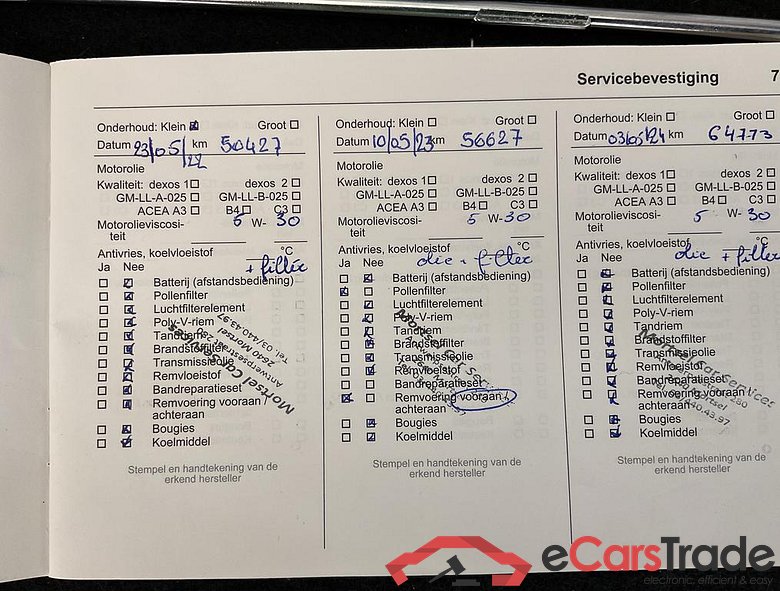 Servicebevestiging 7
Onderhoud: Klein Groot
Datum 23/05/22 km 50427
Motorolie
Kwaliteit: dexos 1 dexos 2
GM-LL-A-025 GM-LL-B-025
ACEA A3 B4 C3
Motorolieviscosi- 5 W- 30
teit
Antivries, koelvloeistof °C
Ja Nee + filter
Batterij (afstandsbediening)
Pollenfilter
Luchtfilterelement
Poly-V-riem
Tandriem
Brandstoffilter
Transmissieolie
Remvloeistof
Bandreparatieset
Remvoering vooraan /
achteraan
Bougies
Koelmiddel
Mortsel Car Services
Antwerpsestraat 280
2640 Mortsel
Tel. 03/440.43.97
Stempel en handtekening van de
erkend hersteller
Onderhoud: Klein Groot
Datum 10/05/23 km 56627
Motorolie
Kwaliteit: dexos 1 dexos 2
GM-LL-A-025 GM-LL-B-025
ACEA A3 B4 C3
Motorolieviscosi- 5 W- 30
teit
Antivries, koelvloeistof °C
Ja Nee olie + filter
Batterij (afstandsbediening)
Pollenfilter
Luchtfilterelement
Poly-V-riem
Tandriem
Brandstoffilter
Transmissieolie
Remvloeistof
Bandreparatieset
Remvoering vooraan /
achteraan
Bougies
Koelmiddel
Mortsel Car Ser
Stempel en handtekening van de
erkend hersteller
Onderhoud: Klein Groot
Datum 03/05/24 km 64773
Motorolie
Kwaliteit: dexos 1 dexos 2
GM-LL-A-025 GM-LL-B-025
ACEA A3 B4 C3
Motorolieviscosi- 5 W- 30
teit
Antivries, koelvloeistof °C
Ja Nee olie + filter
Batterij (afstandsbediening)
Pollenfilter
Luchtfilterelement
Poly-V-riem
Tandriem
Brandstoffilter
Transmissieolie
Remvloeistof
Bandreparatieset
Remvoering vooraan /
achteraan
Bougies
Koelmiddel
Mortsel Car Services
280
Mortsel
440.43.97
Stempel en handtekening van de
erkend hersteller
eCarsTrade
electronic, efficient & easy